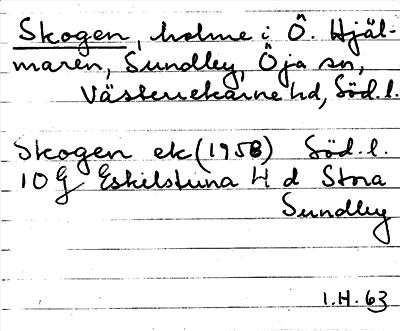 Skogen, holme i Ö. Hjäl-
maren, Sundby, Öja sn,
Västerrekarne hd, Söd.l.
Skogen ek (1958) Söd.l.
10 G Eskilstuna H d Stora
Sundby
I.H. 63